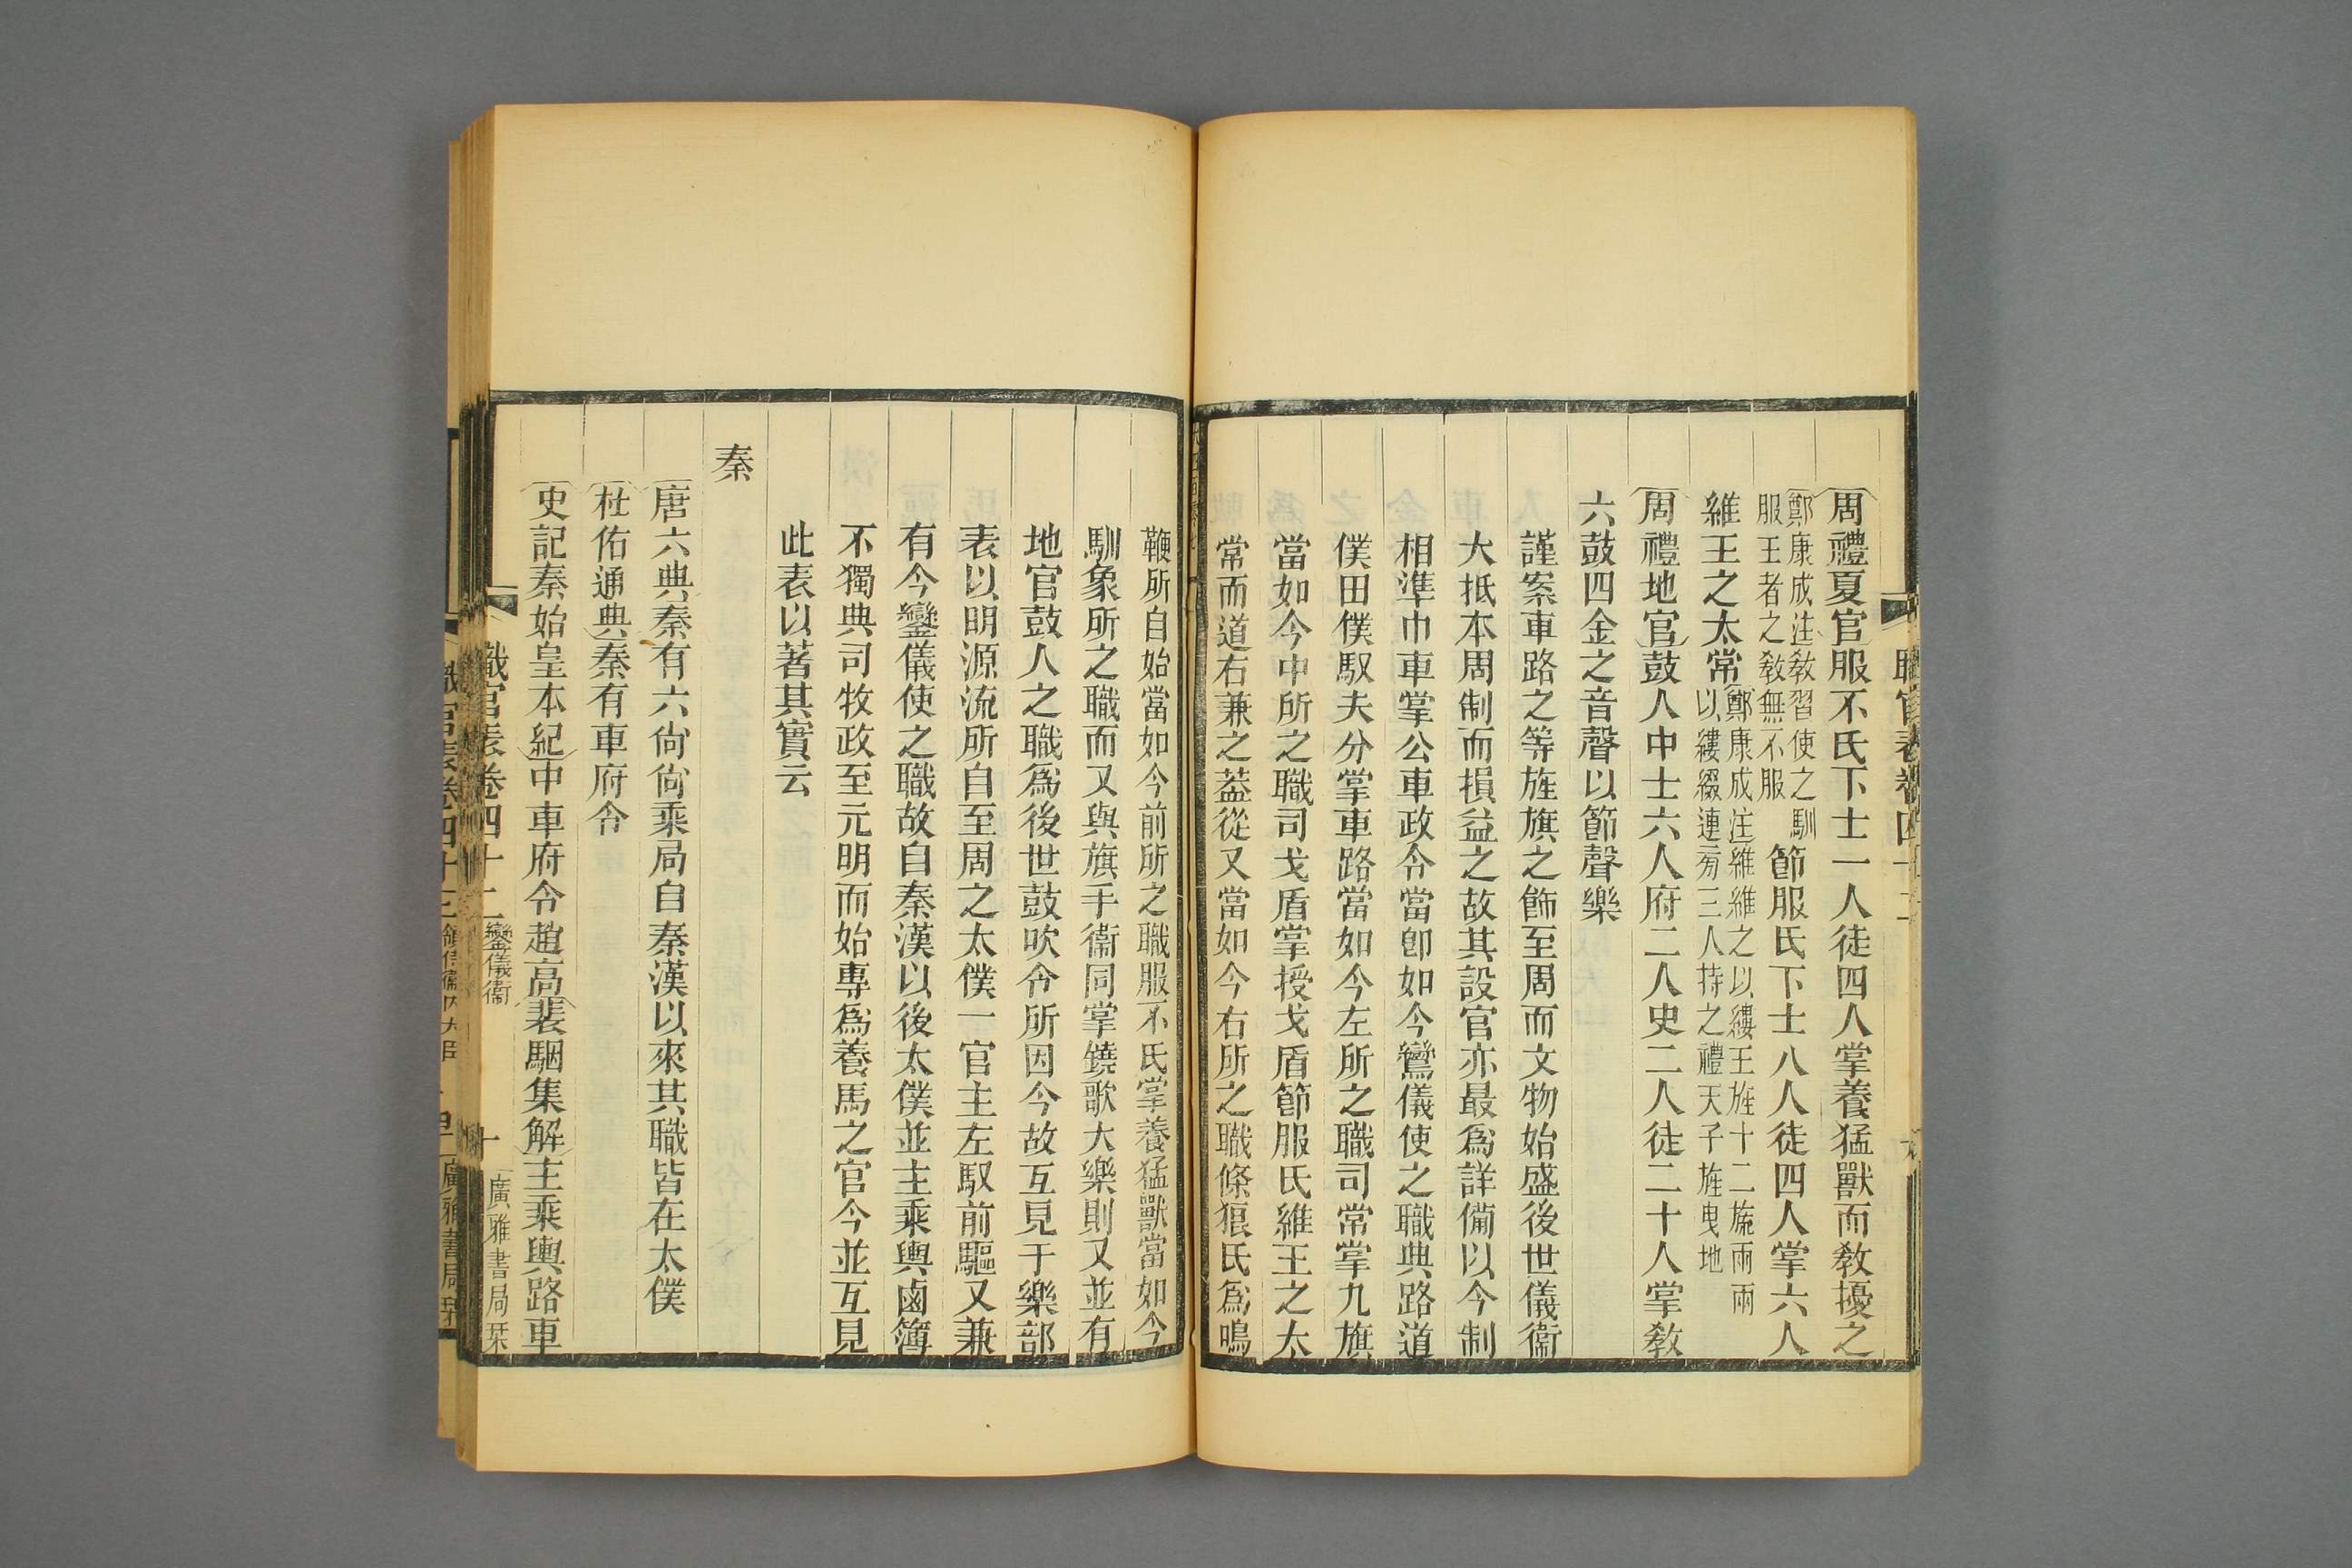 周禮夏官服不氏下士一人徒四人掌養猛獸而敎擾之
鄭康成注敎習使之馴
服王者之敎無不服
節服氏下士八人徒四人掌六人
維王之太常
鄭康成注維維之以縷王旌十二旒兩兩
以縷綴連旁三人持之禮天子旌曳地
周禮地官鼓人中士六人府二人史二人徒二十人掌敎
六鼓四金之音聲以節聲樂
謹案車路之等旌旗之飾至周而文物始盛後世儀衞
大抵本周制而損益之故其設官亦最爲詳備以今制
相準巾車掌公車政令當卽如今鸞儀使之職典路道
僕田僕馭夫分掌車路當如今左所之職司常掌九旗
當如今中所之職司戈盾掌授戈盾節服氏維王之太
常而道右兼之蓋從又當如今右所之職條狼氏爲鳴
鞭所自始當如今前所之職服不氏掌養猛獸當如今
馴象所之職而又與旗手衞同掌鐃歌大樂則又並有
地官鼓人之職爲後世鼓吹令所因今故互見于樂部
表以明源流所自至周之太僕一官主左馭前驅又兼
有今鑾儀使之職故自秦漢以後太僕並主乘輿鹵簿
不獨典司牧政至元明而始專爲養馬之官今並互見
此表以著其實云
秦
唐六典秦有六尙尙乘局自秦漢以來其職皆在太僕
杜佑通典秦有車府令
史記秦始皇本紀中車府令趙高裴駰集解主乘輿路車
職官表卷四十二 鑾儀衞 十 廣雅書局栞